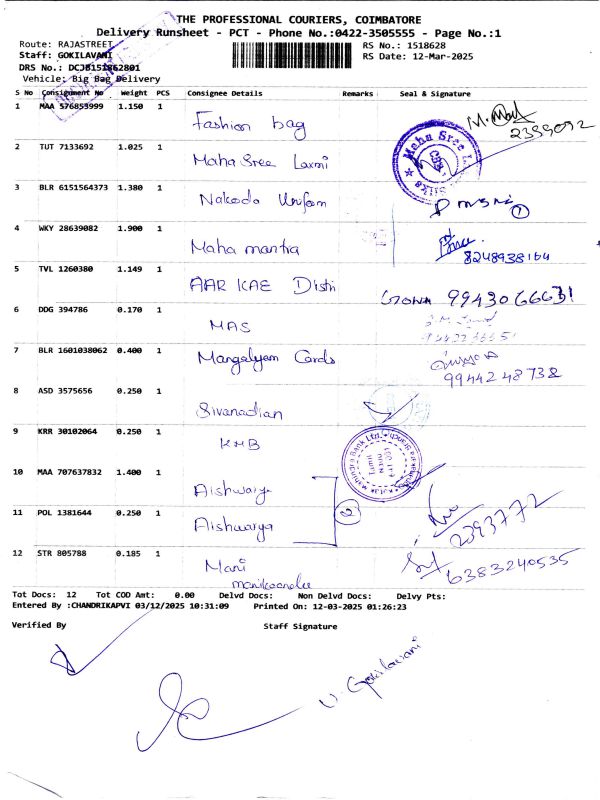 THE PROFESSIONAL COURIERS, COIMBATORE
Delivery Runsheet - PCT - Phone No.:0422-3505555 - Page No.:1
Route: RAJASTREET RS No.: 1518628
Staff: GOKILAVANI RS Date: 12-Mar-2025
DRS No.: DCJB151862801
Vehicle: Big Bag Delivery
S No Consignment No Weight PCS Consignee Details Remarks Seal & Signature
1 MAA 576853999 1.150 1 Fashion bag
2 TUT 7133692 1.025 1 Maha Sree Laxmi
Maha Sree
3 BLR 6151564373 1.380 1 Nakoda Uniform
4 WKY 28639082 1.900 1 Maha mantra 8248938164
5 TVL 1260380 1.149 1 AAR KAE Distri 9943066631
6 DDG 394786 0.170 1 MAS
7 BLR 1601038062 0.400 1 Mangalyam Cards 9944248738
8 ASD 3575656 0.250 1 Sivanadian
9 KRR 30102064 0.250 1 KMB
Mahindra Bank Ltd.
10 MAA 707637832 1.400 1 Aishwarya
2
11 POL 1381644 0.250 1 Aishwarya 2393772
12 STR 805788 0.185 1 Mani 6383240535
Tot Docs: 12 Tot COD Amt: 0.00 Delvd Docs: Non Delvd Docs: Delvy Pts:
Entered By :CHANDRIKAPVI 03/12/2025 10:31:09 Printed On: 12-03-2025 01:26:23
Verified By Staff Signature
V. Gokilavani